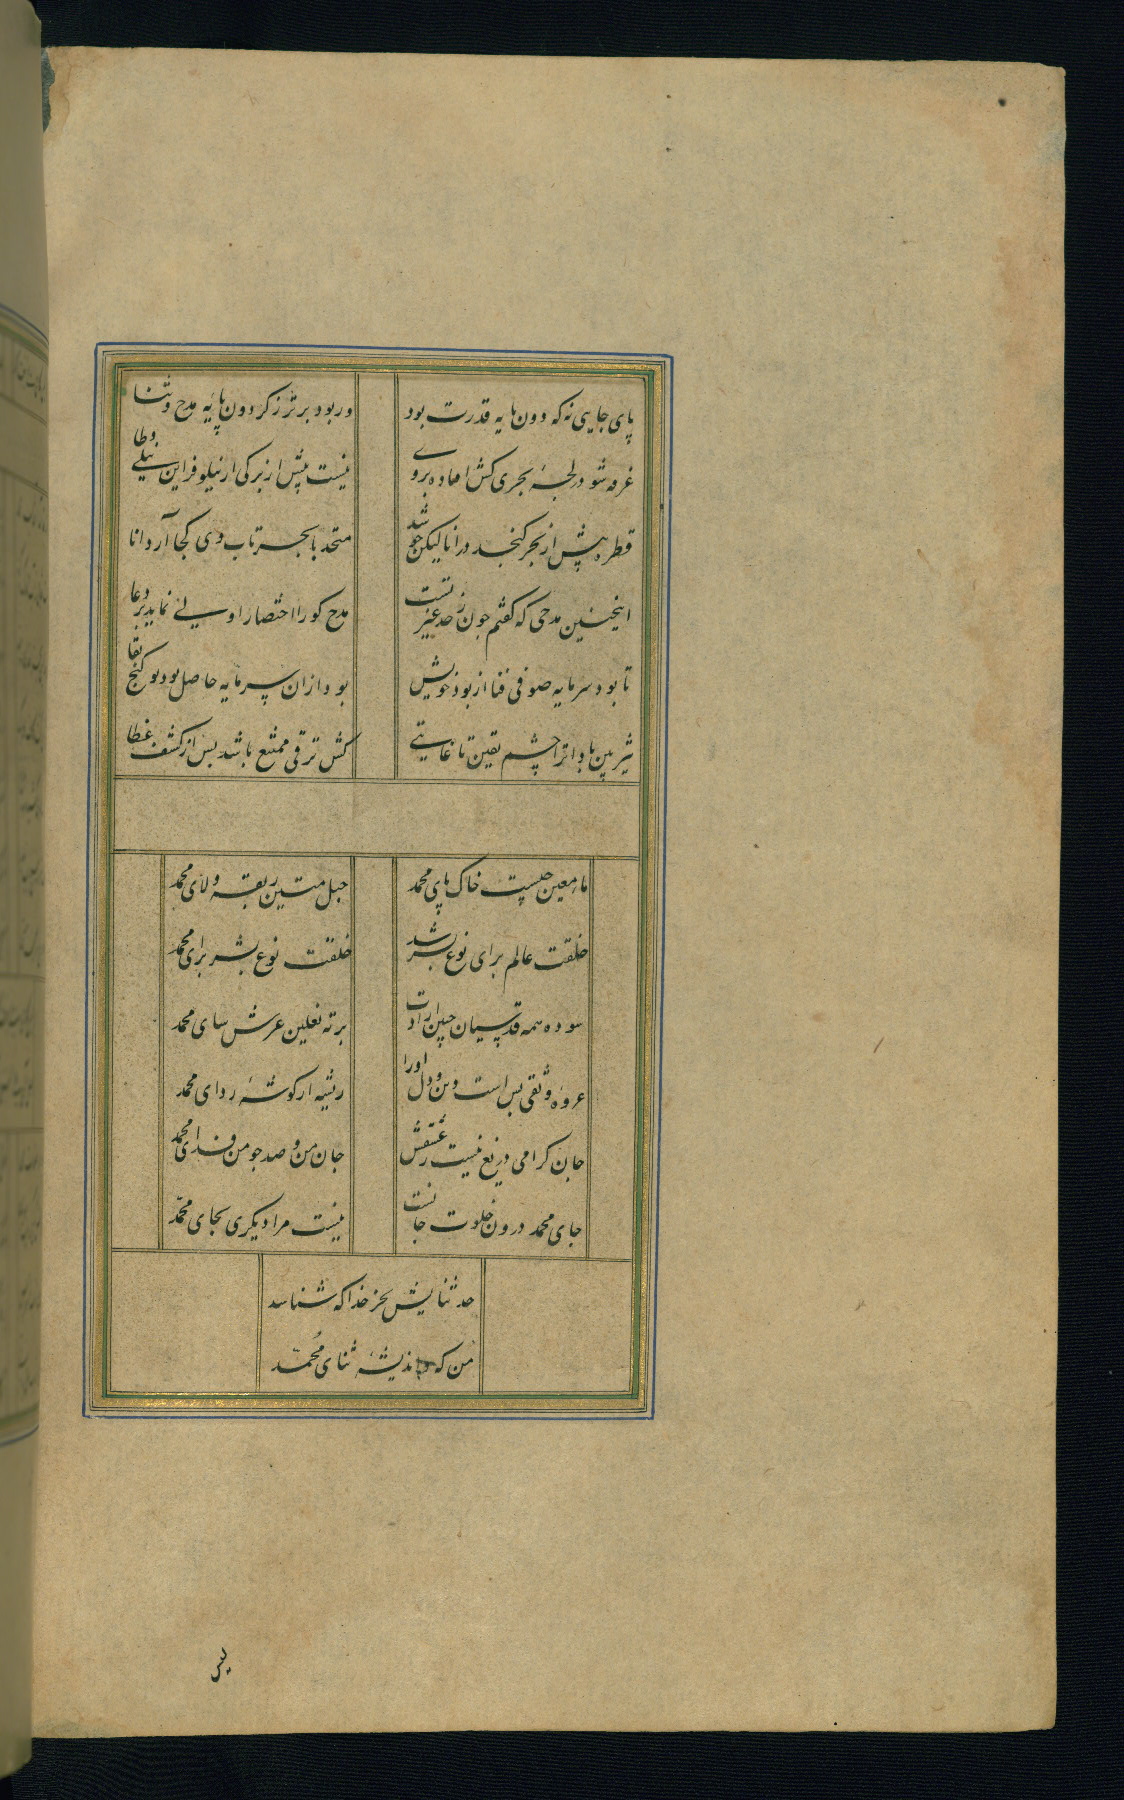 پای جایی نه که دون پایه قدرت بود
وربود برتر ز گردون پایه مدح و ثنا
غرقه شو در لجه بحری کش افتاده بروی
نیست بیش از برکی از نیلوفر این نیلی وطا
قطره بیش از بحر گنجد در انا لیکن چو شد
متحد با بحر تاب وی کجا آرد انا
اینچنین مدحی که گفتم چون ز حد عجز تست
مدح کو را اختصار اولی نماید بر دعا
تا بود سرمایه صوفی فنا از بود خویش
بود ازان سرمایه حاصل بودبو کنج بقا
تیزبین بادا ترا چشم یقین تا غایتی
کش ترقی ممتنع باشد پس از کشف غطا
ماء معین چیست خاک پای محمد
حبل متین ربقه ولای محمد
خلقت عالم برای نوع بشر شد
خلقت نوع بشر برای محمد
سوده همه قدسیان جبین ارادت
بر ته نعلین عرش سای محمد
عروه وثقی بس است دین و دل او را
ریشه از گوشه ردای محمد
جان گرامی دریغ نیست ز عشقش
جان من و صد چو من فدای محمد
جای محمد درون خلوت جانست
نیست مرا دیگری بجای محمد
حد ثنایش بجز خدا که شناسد
من که و اندیشه ثنای محمد
لیس